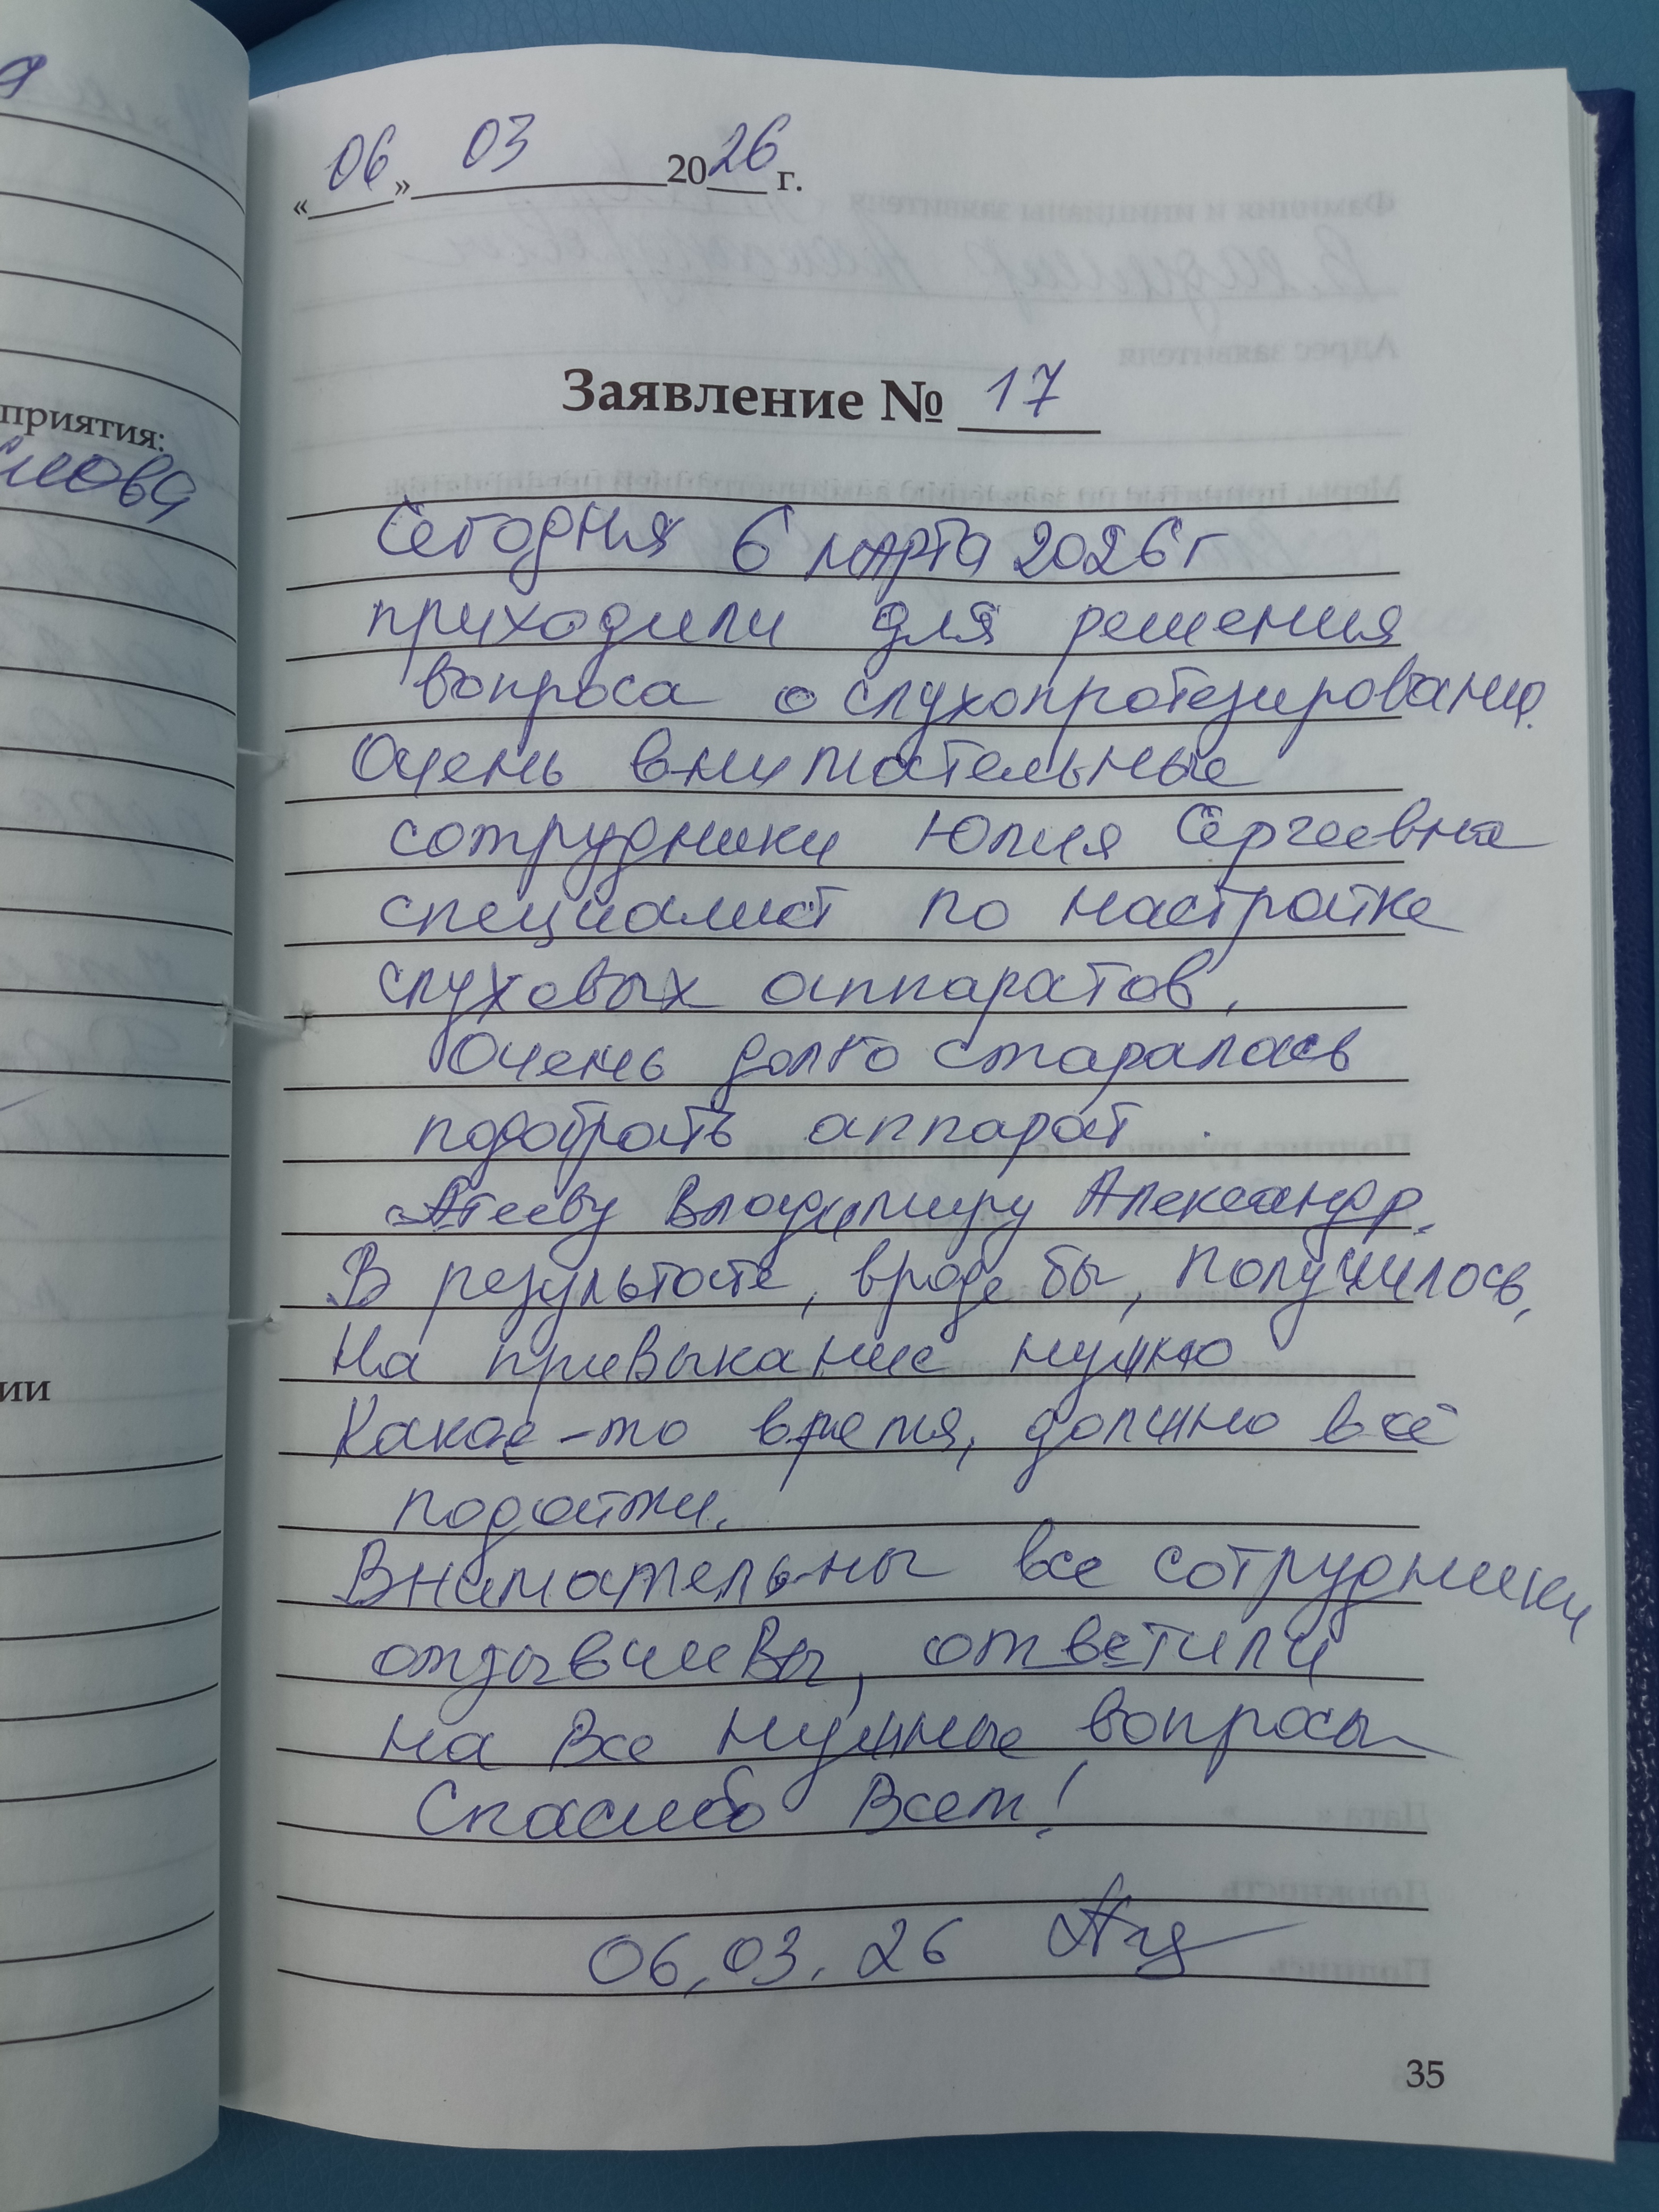 приятия:
ии
«06» 03 2026 г.
Заявление № 17
Сегодня 6 марта 2026 г
приходили для решения
вопроса о слухопротезировании.
Очень внимательные
сотрудники Юлия Сергеевна
специалист по настройке
слуховых аппаратов,
Очень долго старалась
подобрать аппарат.
Владимиру Александр.
В результате, вроде бы, получилось,
На привыкание нужно
Какое-то время, должно всё
подойти.
Внимательны все сотрудники
отзывчивы, ответили
на все нужные вопросы
Спасибо Всем!
06.03.26
35